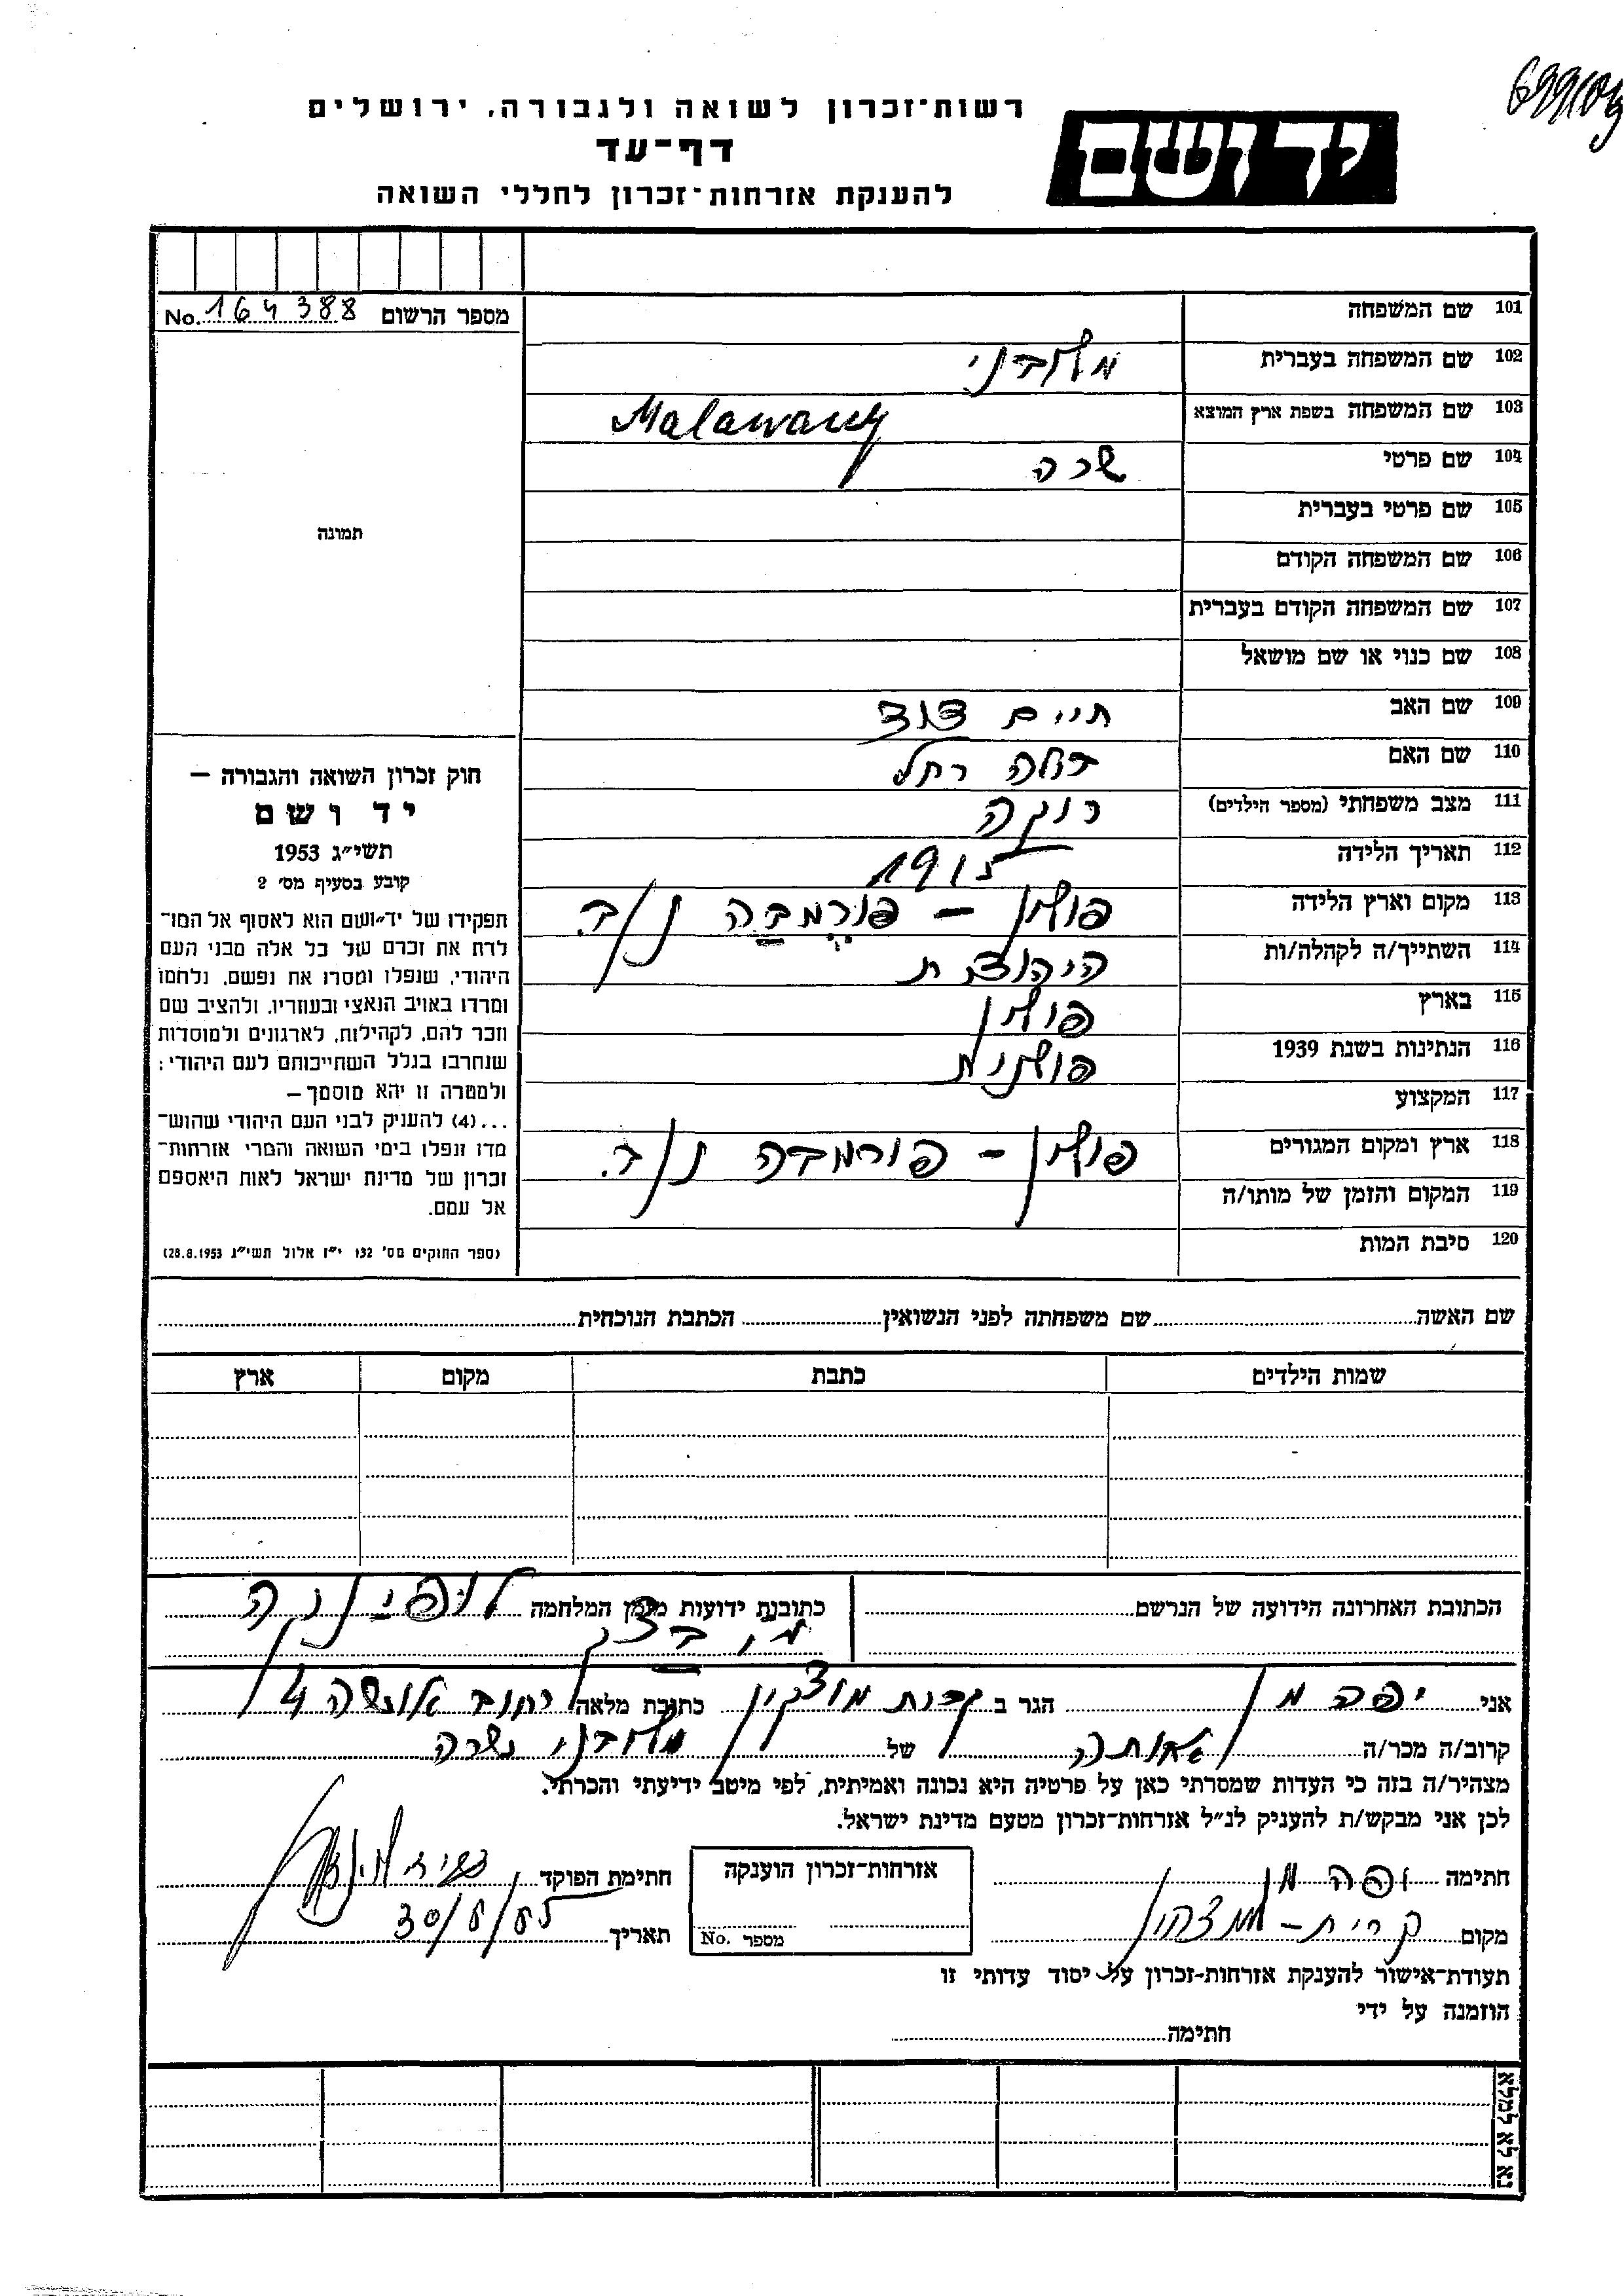 רשות־זכרון לשואה ולגבורה, ירושלים
דף־עד
להענקת אזרחות־זכרון לחללי השואה
יד ושם
No. 164388 מספר הרשום
תמונה
101 שם המשפחה
102 שם המשפחה בעברית מלובני
103 שם המשפחה בשפת ארץ המוצא
104 שם פרטי שרה
105 שם פרטי בעברית
106 שם המשפחה הקודם
107 שם המשפחה הקודם בעברית
108 שם כנוי או שם מושאל
109 שם האב חיים דוד
110 שם האם רחל
111 מצב משפחתי (מספר הילדים) רווקה
112 תאריך הלידה 1915
113 מקום וארץ הלידה פולין – פורמבה
114 השתייך/ה לקהלה/ות היהודית
115 בארץ פולין
116 הנתינות בשנת 1939 פולנית
117 המקצוע
118 ארץ ומקום המגורים פולין – פורמבה
119 המקום והזמן של מותו/ה
120 סיבת המות
חוק זכרון השואה והגבורה —
יד ושם
תשי״ג 1953
קובע בסעיף מס׳ 2
תפקידו של יד־ושם הוא לאסוף אל המו־
לדת את זכרם של כל אלה מבני העם
היהודי, שנפלו ומסרו את נפשם, נלחמו
ומרדו באויב הנאצי ובעוזריו, ולהציב שם
וזכר להם, לקהילות, לארגונים ולמוסדות
שנחרבו בגלל השתייכותם לעם היהודי:
ולמטרה זו יהא מוסמך—
...(4) להעניק לבני העם היהודי שהוש־
מדו ונפלו בימי השואה והמרי אזרחות־
זכרון של מדינת ישראל לאות היאספם
אל עמם.
(ספר החוקים מס׳ 132 י״ז אלול תשי״ג 28.8.1953)
שם האשה שם משפחתה לפני הנשואין הכתבת הנוכחית
שמות הילדים כתבת מקום ארץ
הכתובת האחרונה הידועה של הנרשם
כתובות ידועות מזמן המלחמה
אני יפה מן הגר ב קרית מוצקין כתובת מלאה רחוב אושה 4
קרוב/ה מכר/ה אחותה של מלובני שרה
מצהיר/ה בזה כי העדות שמסרתי כאן על פרטיה היא נכונה ואמיתית, לפי מיטב ידיעתי והכרתי.
לכן אני מבקש/ת להעניק לנ״ל אזרחות־זכרון מטעם מדינת ישראל.
חתימה יפה מן
מקום קרית – מוצקין
אזרחות־זכרון הוענקה
מספר No.
חתימת הפוקד
תאריך
תעודת־אישור להענקת אזרחות־זכרון על יסוד עדותי זו
הוזמנה על ידי
חתימה
נא לא למלא